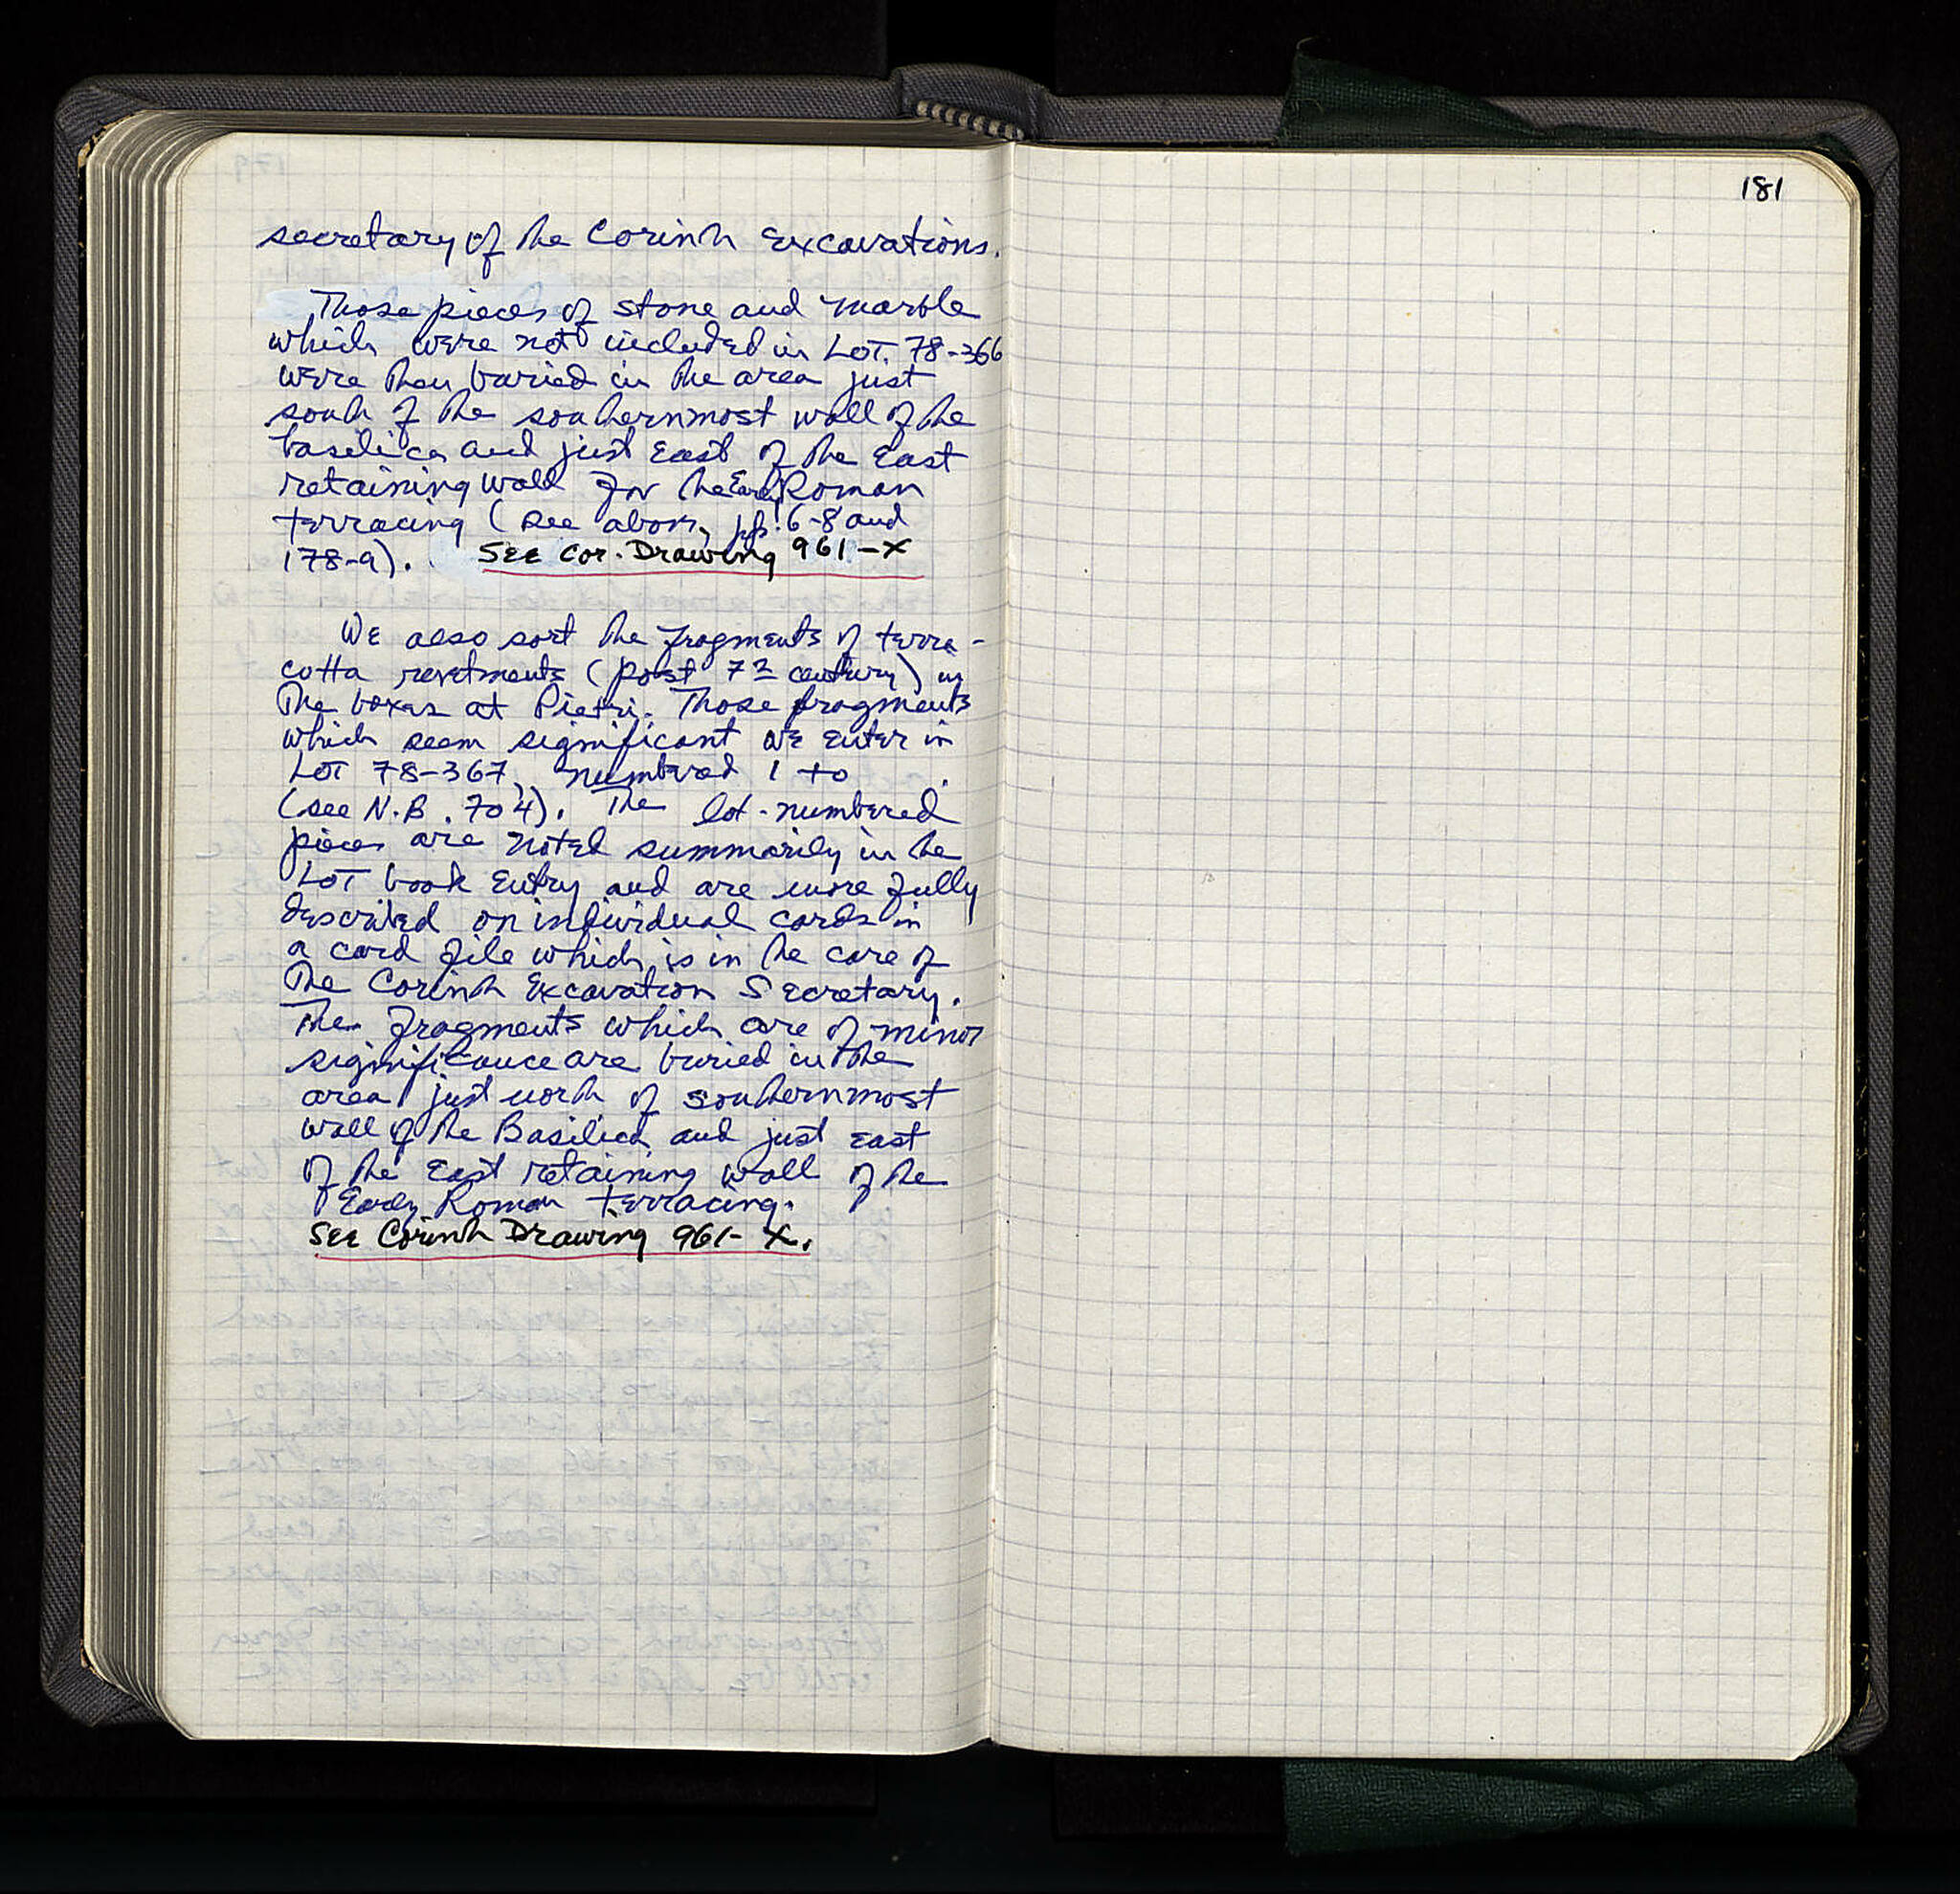 secretary of the Corinth Excavations.
Those pieces of stone and marble
which were not included in LOT. 78-366
were then buried in the area just
south of the southernmost wall of the
basilica and just East of the East
retaining wall for the Early Roman
terracing (see above, pp. 6-8 and
178-9). SEE Cor. Drawing 961-X
WE also sort the fragments of terra-
cotta revetments (post 7th century) in
The boxes at Pietri. Those fragments
which seem significant we enter in
LOT 78-367, numbered 1 to .
(see N.B. 704). The lot-numbered
pieces are noted summarily in the
LOT book entry and are more fully
described on individual cards in
a card file which is in the care of
The Corinth Excavation Secretary.
The fragments which are of minor
significance are buried in the
area just north of southernmost
wall of the Basilica and just east
of the East retaining wall of the
Early Roman terracing.
SEE Corinth Drawing 961-X.
181